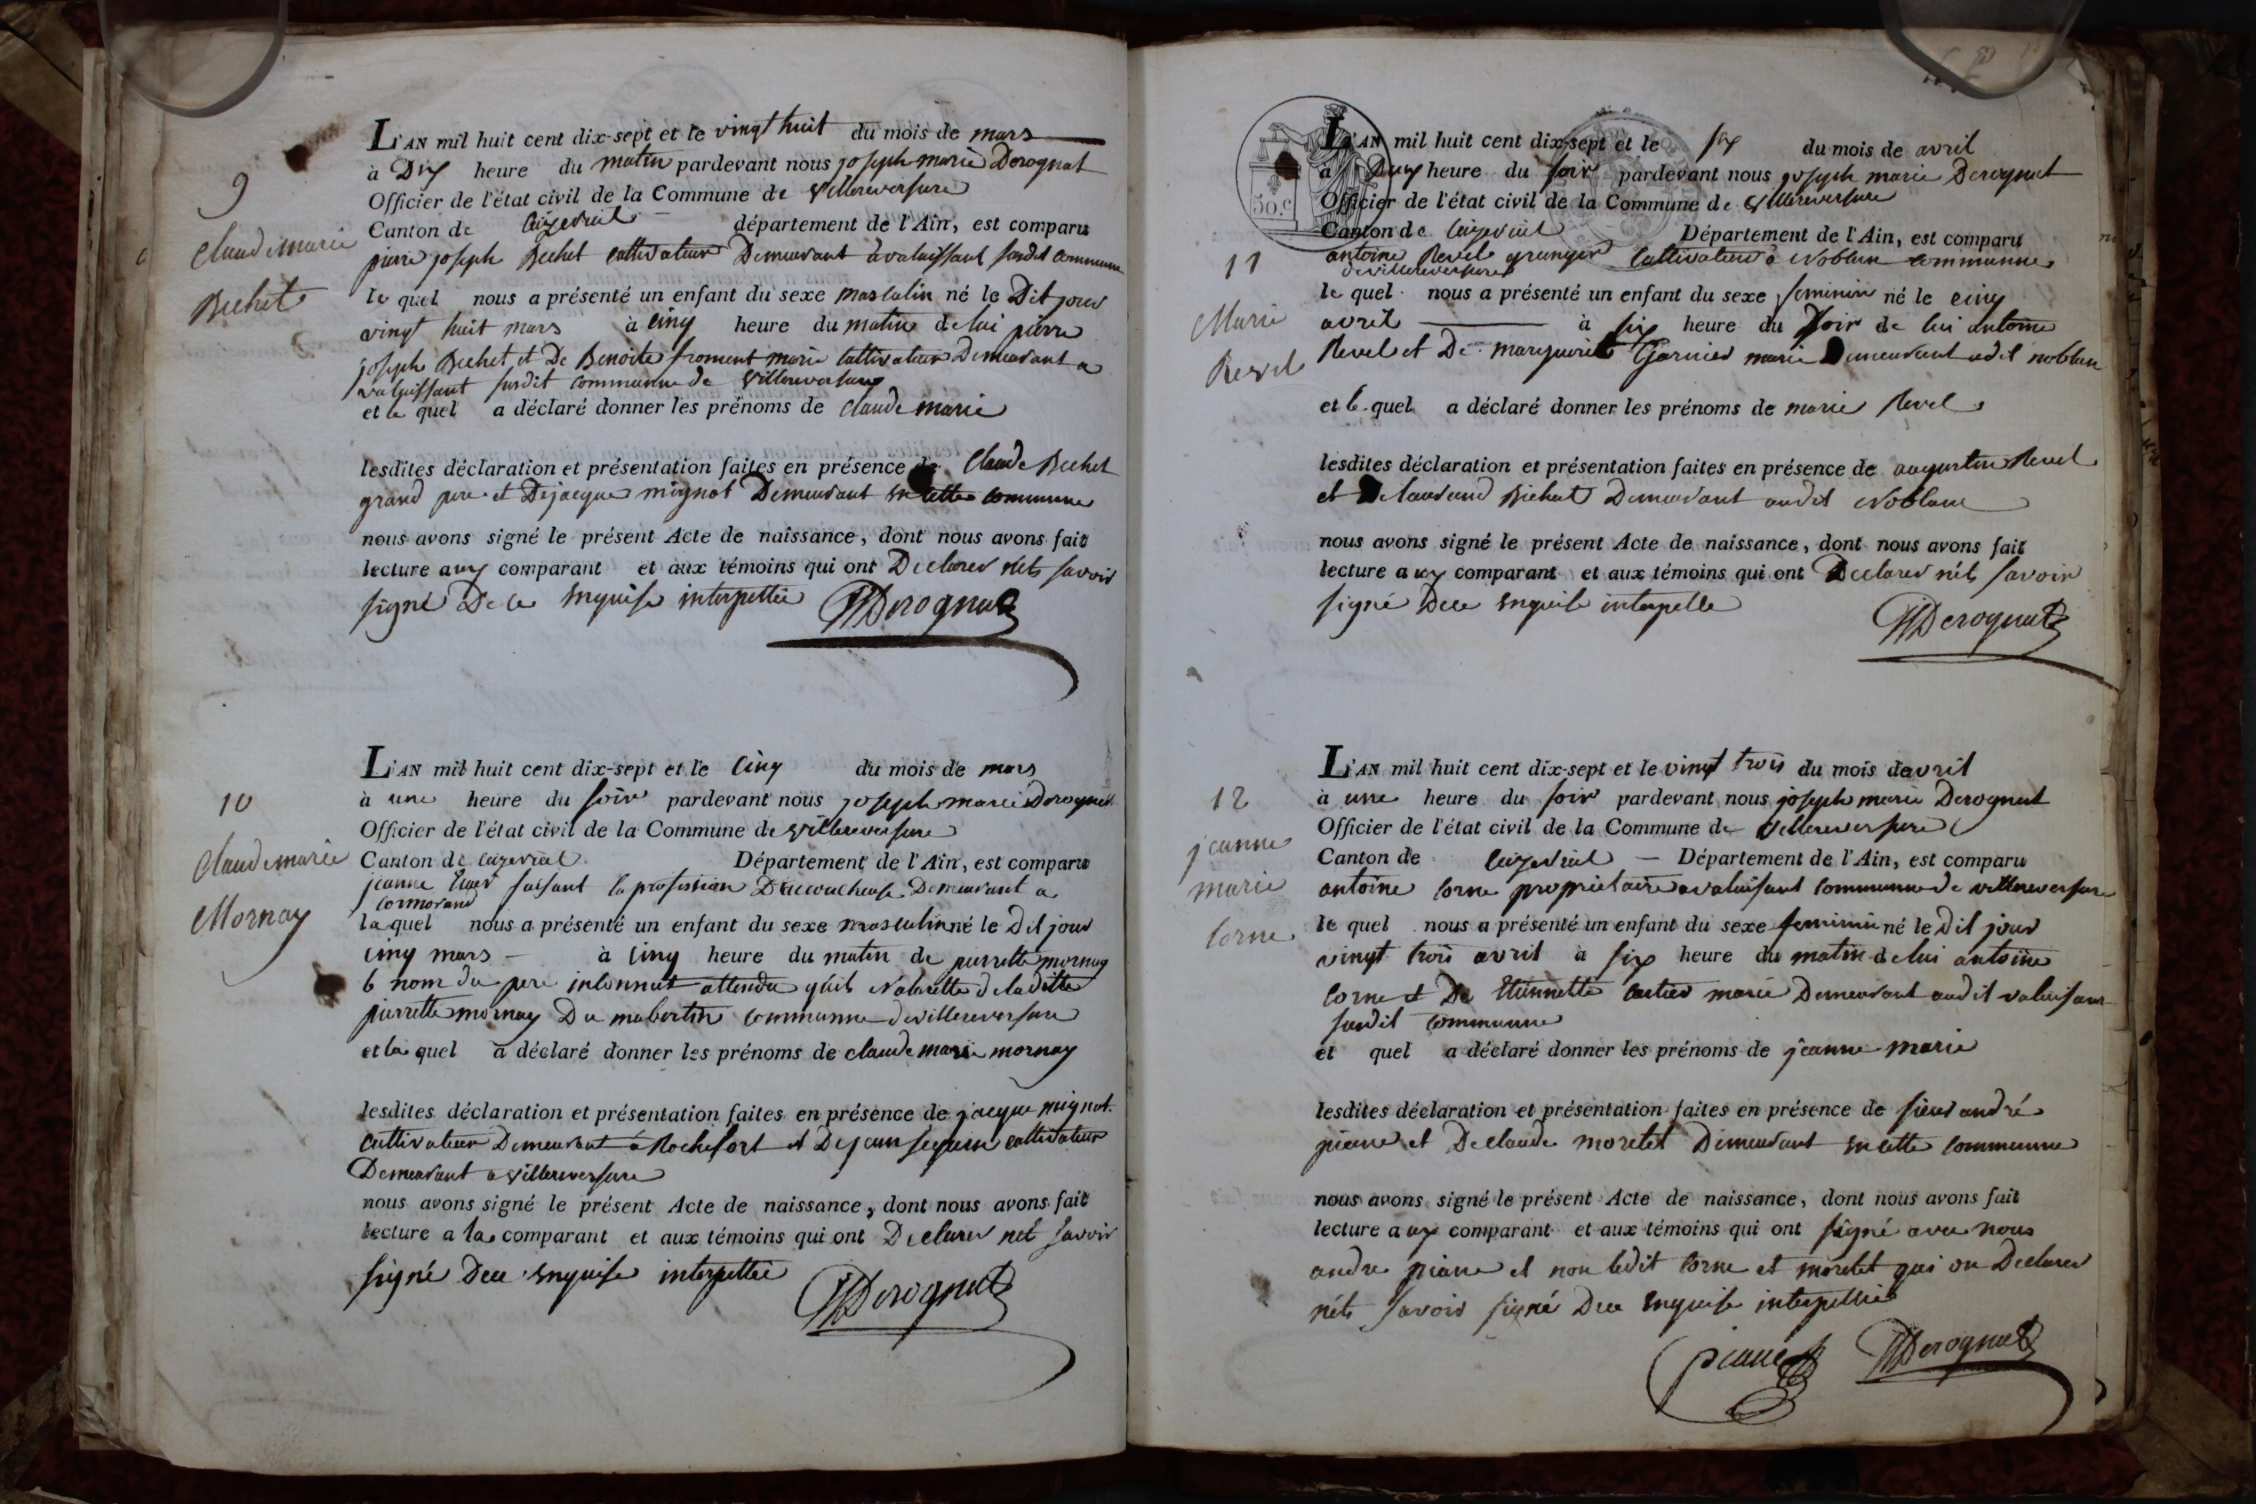 9
Claude marie
Bechet
L'AN mil huit cent dix-sept et le vingt huit du mois de mars
à Dix heure du matin pardevant nous joseph marie Derognat
Officier de l'état civil de la Commune de villereversure
Canton de Ceyzeriat département de l'Ain, est comparu
pierre joseph Bechet cultivateur Demeurant a valuissant susdit commune
le quel nous a présenté un enfant du sexe masculin né le Dit jour
vingt huit mars à cinq heure du matin de lui pierre
joseph Bechet et De Benoite froment marié cultivateur Demeurant a
valuissant susdit communne de villereversure
et le quel a déclaré donner les prénoms de claude marie
lesdites déclaration et présentation faites en présence de Claude Bechet
grand pere et De jacque mignot Demeurant en cette communne
nous avons signé le présent Acte de naissance, dont nous avons fait
lecture aux comparant et aux témoins qui ont Declarer nets savoir
signé De ce enquise interpellée
Derognat
10
Claude marie
Mornay
L'AN mil huit cent dix-sept et le cinq du mois de mars
à une heure du soir pardevant nous joseph marie Derognat
Officier de l'état civil de la Commune de villereversure
Canton de ceyzeriat Département de l'Ain, est comparu
jeanne faisant la profession D'accoucheuse Demeurant a
cormorand
la quel nous a présenté un enfant du sexe masculin né le Dit jour
cinq mars à cinq heure du matin de pierrette mornay
le nom du pere inconnut attendu quil de la ditte
pierrette mornay Du mabertin communne de villereversure
et la quel a déclaré donner les prénoms de claude marie mornay
lesdites déclaration et présentation faites en présence de jacque mignot
cultivateur Demeurant a Rochefort et De jean seguin cultivateur
Demeurant a villereversure
nous avons signé le présent Acte de naissance, dont nous avons fait
lecture a la comparant et aux témoins qui ont Declarer net savoir
signé De ce enquise interpellée
Derognat
11
Marie
Revel
50.c
L'AN mil huit cent dix-sept et le six du mois de avril
à Deux heure du soir pardevant nous joseph marie Derognat
Officier de l'état civil de la Commune de villereversure
Canton de Ceyzeriat Département de l'Ain, est comparu
antoine Revel granger Cultivateur a Noblan communne
de villereversure
le quel nous a présenté un enfant du sexe feminin né le cinq
avril à six heure du soir de lui antoine
Revel et De marguerite Garnier marie Demeurant adit noblan
et le quel a déclaré donner les prénoms de marie Revel
lesdites déclaration et présentation faites en présence de augustin Revel
et De laurand Bichat Demeurant audit Noblan
nous avons signé le présent Acte de naissance, dont nous avons fait
lecture aux comparant et aux témoins qui ont Declarer nets savoir
signé De ce enquise interpelle
Derognat
12
jeanne
marie
Corne
L'AN mil huit cent dix-sept et le vingt trois du mois de avril
à une heure du soir pardevant nous joseph marie Derognat
Officier de l'état civil de la Commune de villereversure
Canton de Ceyzeriat Département de l'Ain, est comparu
antoine Corne proprietaire a valuisant communne de villereversure
le quel nous a présenté un enfant du sexe feminin né le Dit jour
vingt trois avril à six heure du matin de lui antoine
Corne et De Etiennette cartier marié Demeurant audit valuisant
susdit communne
et quel a déclaré donner les prénoms de jeanne marie
lesdites déclaration et présentation faites en présence de sieur andré
piane et De claude moretet Demeurant en cette communne
nous avons signé le présent Acte de naissance, dont nous avons fait
lecture aux comparant et aux témoins qui ont signé avec nous
andre piane et non ledit Corne et moretet qui on Declarer
nets savoir signé De ce enquise interpellée
piane
Derognat